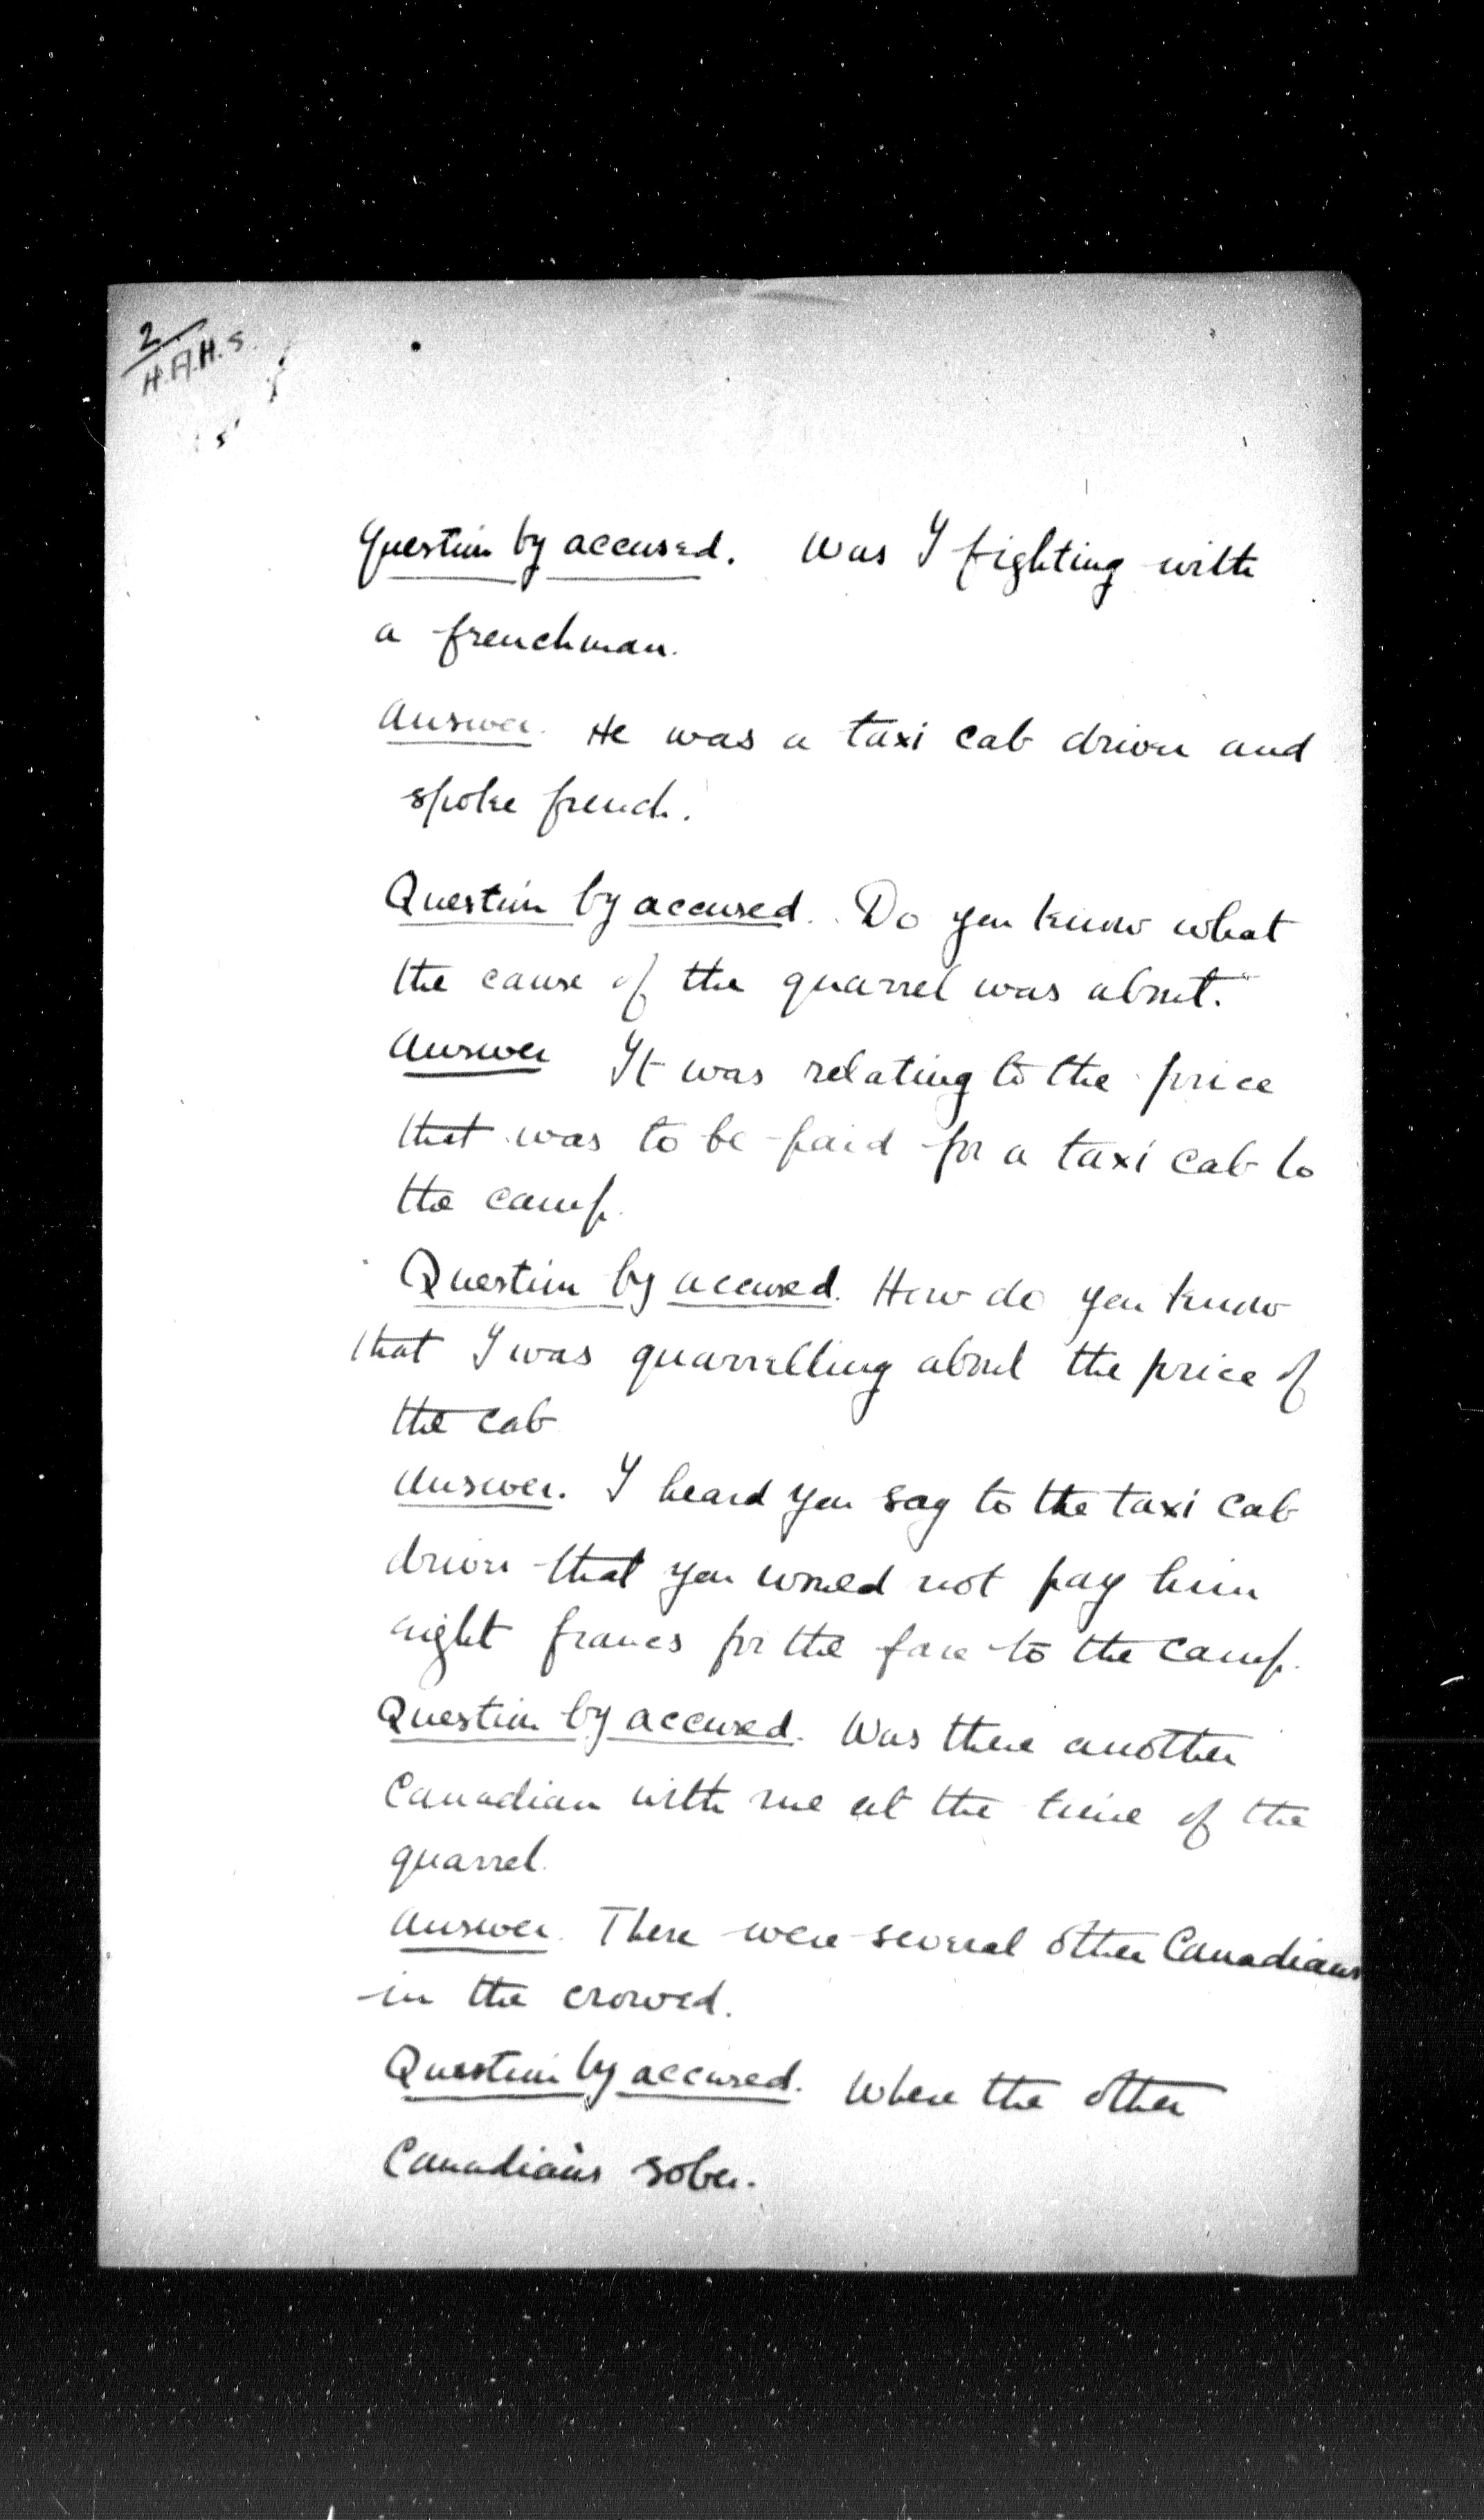 2
H.A.H.S.
Question by accused. Was I fighting with
a frenchman.
Answer. He was a taxi cab driver and
spoke french.
Question by accused. Do you know what
the cause of the quarrel was about.
Answer It was relating to the price
that was to be paid for a taxi cab to
the camp.
Question by accused. How do you know
that I was quarrelling about the price of
the cab
Answer. I heard you say to the taxi cab
driver that you would not pay him
eight francs for the fare to the camp.
Question by accused. Was there another
Canadian with me at the time of the
quarrel.
Answer. There were several other Canadians
in the crowed.
Question by accused. Where the other
Canadians sober.